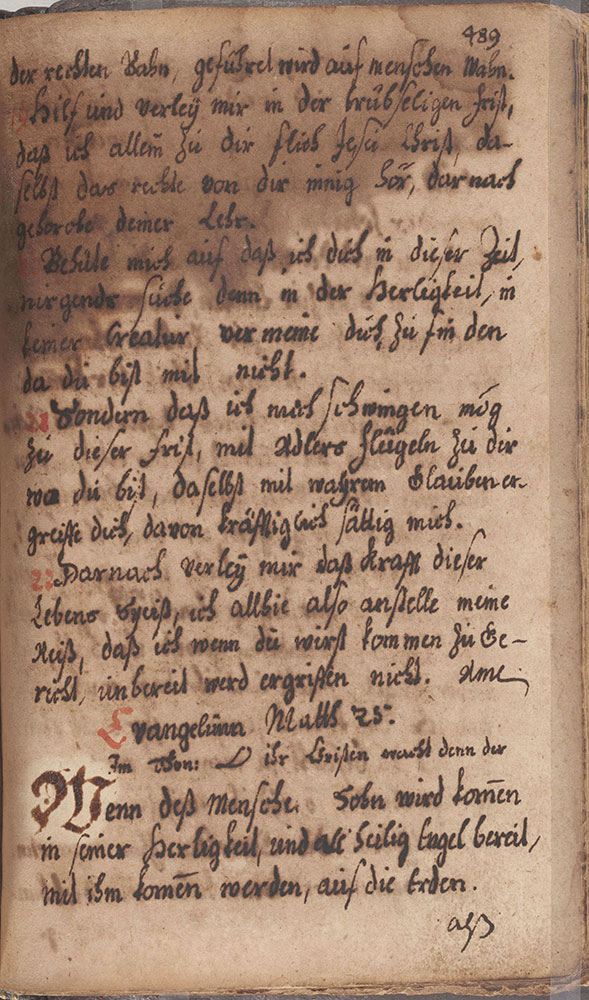 489
der rechten Bahn, geführet wird auf menschen Wahn.
19 Hilf und verleÿ mir in der trübseligen frist,
daß ich allein zu dir flieh Jesu Christ, da-
selbst das rechte von dir innig hör, darnach
gehorche deiner Lehr.
Behüte mich auf daß ich dich in dieser Zeit,
nirgends suche denn in der Herligkeit, in
keiner Creatur vermeine dich zu finden
da du bist mit nicht.
21 Sondern daß ich mich schwingen mög
zu dieser frist, mit Adlers flügeln zu dir
wo du bist, daselbst mit wahrem Glauben er-
greiffe dich, davon kräfftiglich sättig mich.
22 Darnach verleÿ mir daß krafft dieser
Lebens Speiß, ich allhie also anstelle meine
Reiß, daß ich wenn du wirst kommen zu Ge-
richt, unbereit werd ergriffen nicht. Ame
Evangelium Matth 25.
Im Thon: O ihr Christen wacht denn der
Wenn deß Mensche. Sohn wird kom̄en
in seiner Herligkeit, und all heilig Engel bereit,
mit ihm kom̄en werden, auf die Erden.
alß